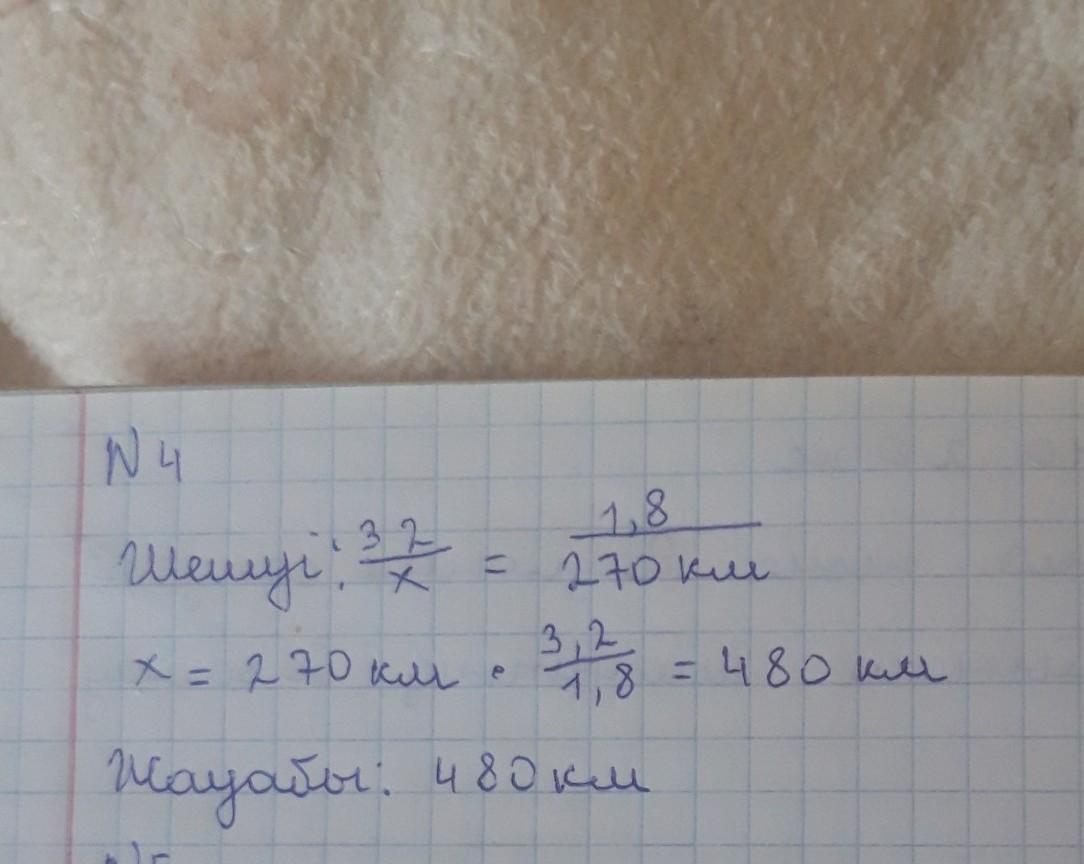 N 4
Шешуі: 3 2/x = 1,8/270 км
x = 270 км • 3,2/1,8 = 480 км
Жауабы: 480 км